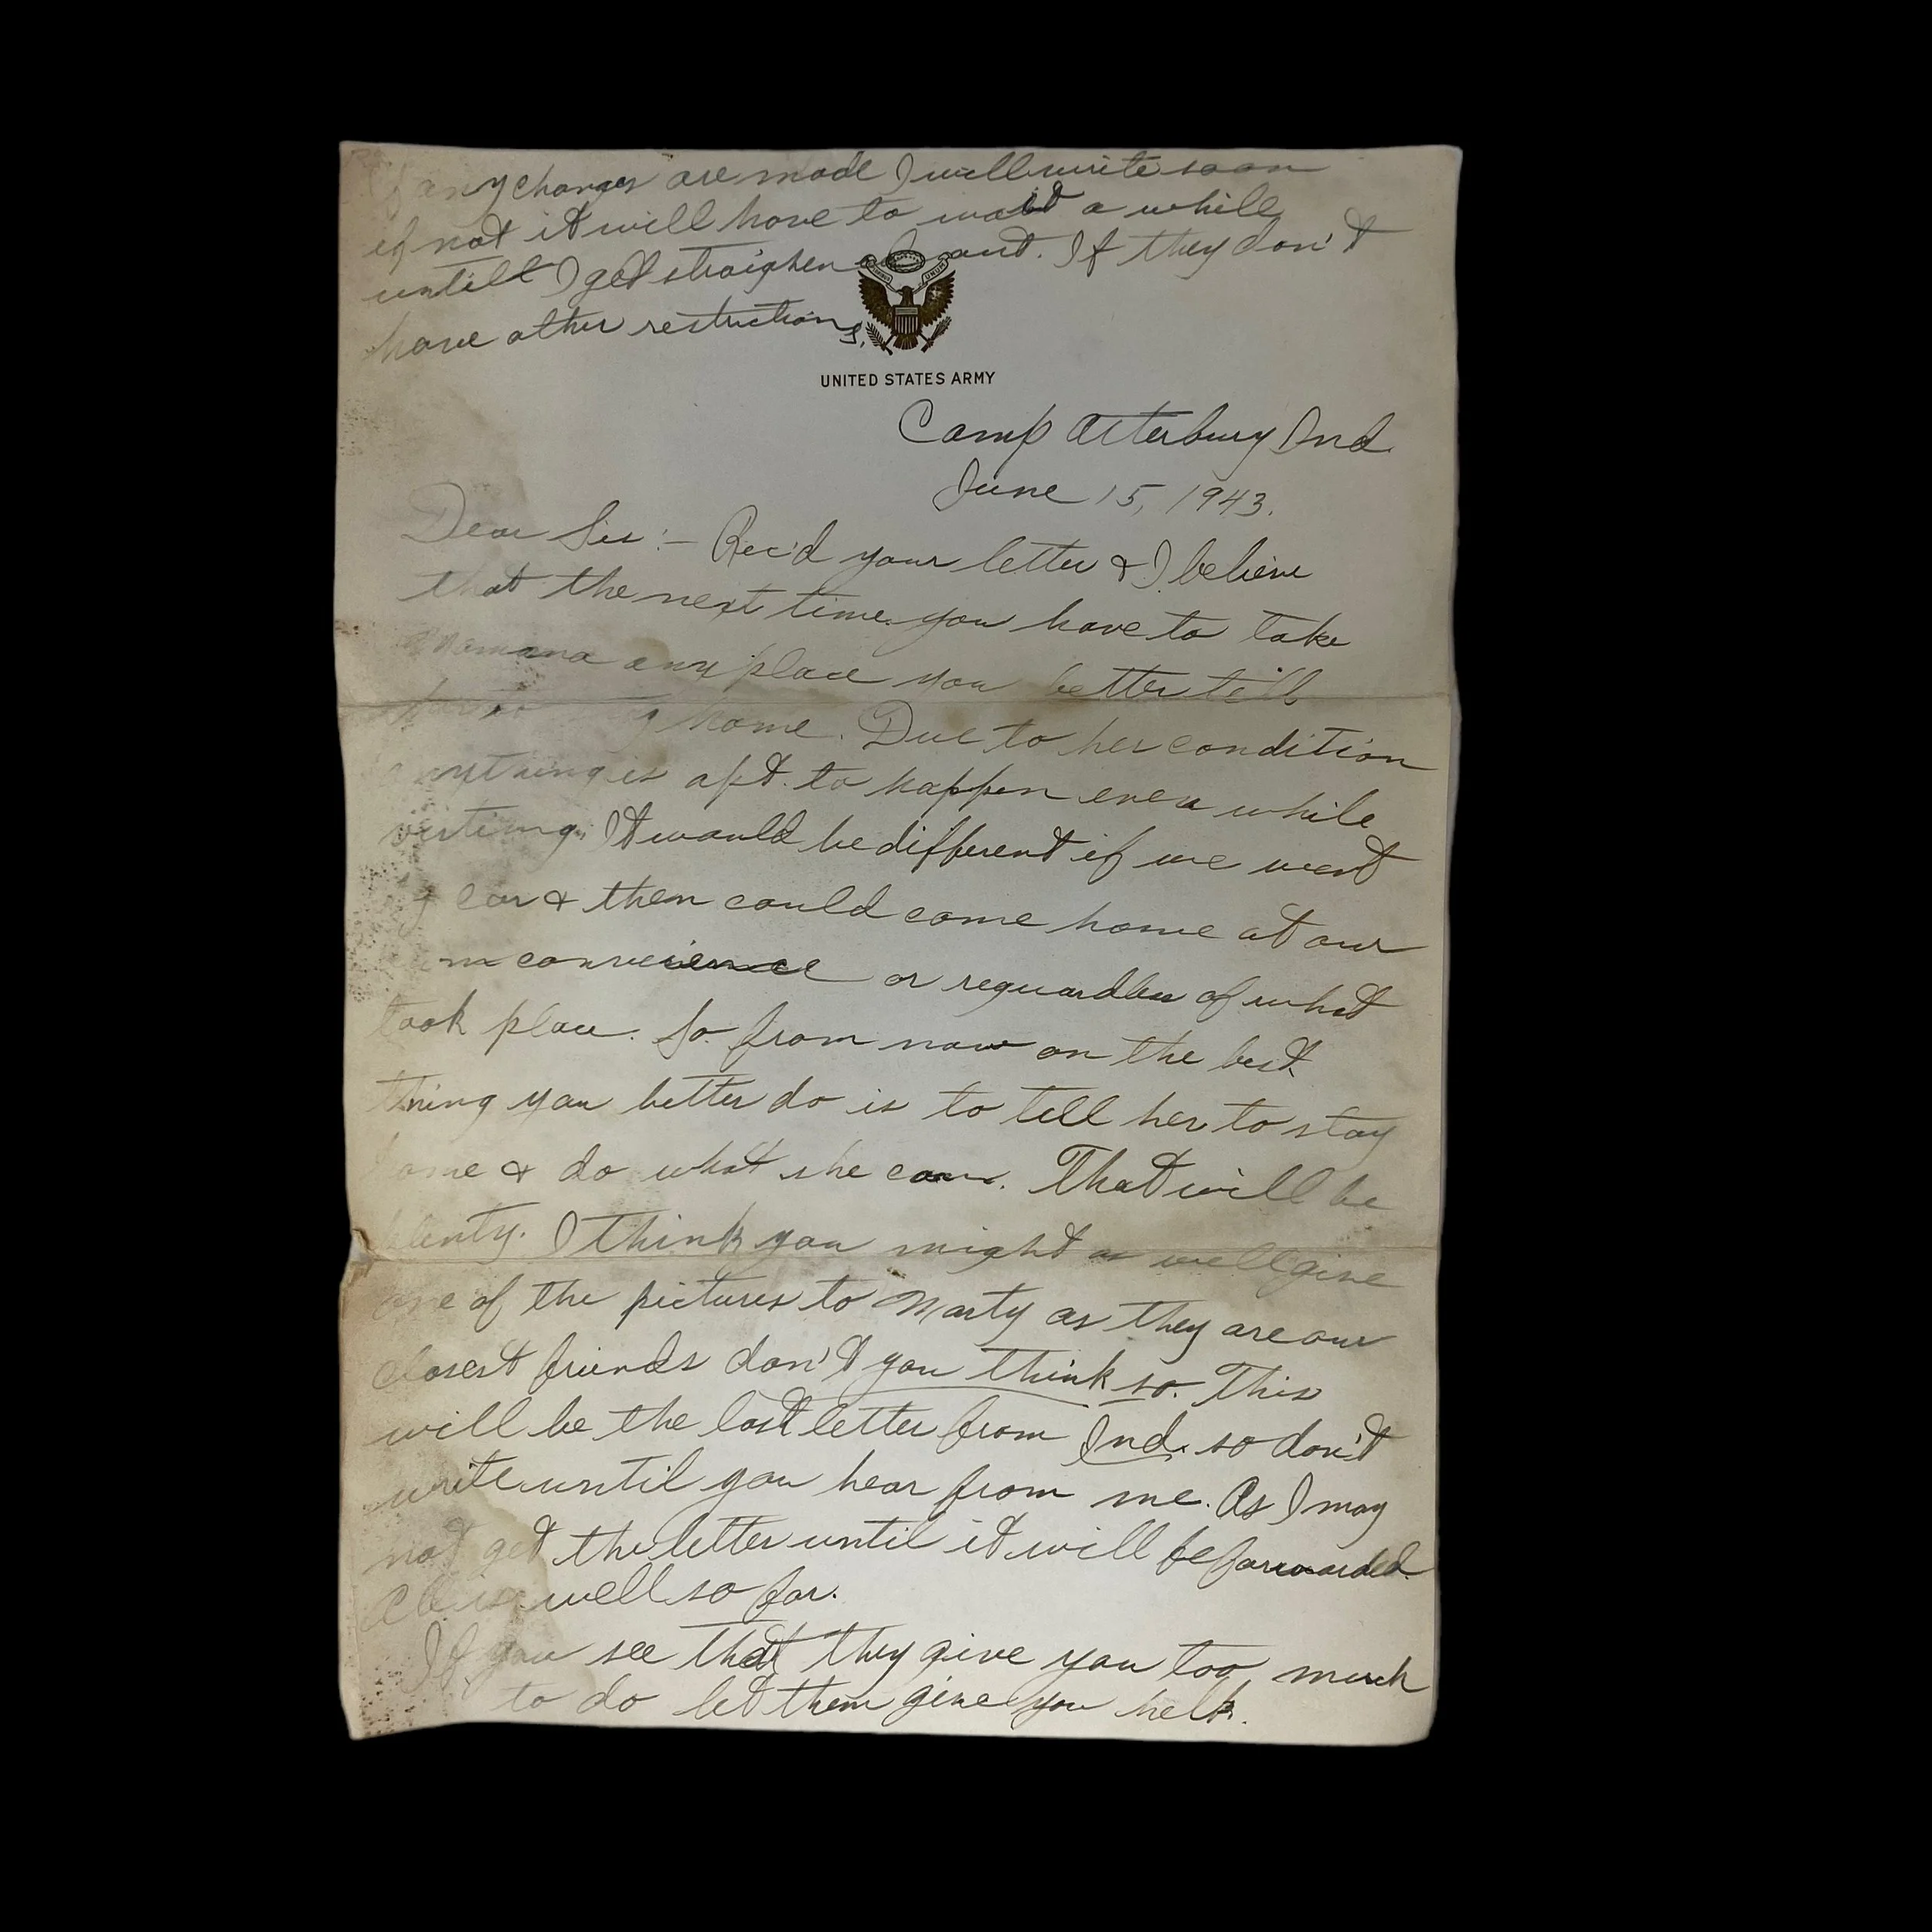 If any changes are made I will write soon
if not it will have to wait a while
untill I get straighen out. If they don't
have other restrictions.
E PLURIBUS UNUM
UNITED STATES ARMY
Camp Atterbury Ind.
June 15, 1943.
Dear Sis:- Rec'd your letter & I believe
that the next time you have to take
any place you better tell
home. Due to her condition
anything is apt to happen even while
visting. It would be different if we went
by car & then could come home at our
own conveience or reguardless of what
took place. So from now on the best
thing you better do is to tell her to stay
home & do what she can. That will be
plenty. I think you might as well give
one of the pictures to Marty as they are our
closest friends don't you think so. This
will be the last letter from Ind. so don't
write until you hear from me. As I may
not get the letter until it will be forwarded.
All is well so far.
If you see that they give you too much
to do let them give you help.